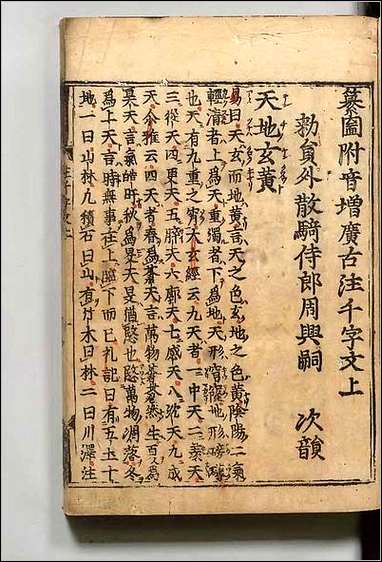 纂圖附音增廣古注千字文上
勅負外散騎侍郎周興嗣 次韻
天地玄黄
易曰天玄而地黄言天之色玄地之色黄陰陽二氣
輕清者上為天重濁者下為地天形穹窿地形磅礴
也天有九重之霄太玄經云九天者一中天二羨天
三從天四更天五睟天六廓天七咸天八沈天九成
天尒雅云四天者春為蒼天言萬物蒼蒼然生夏為
昊天言氣皓旰秋為旻天旻猶愍也愍萬物凋落冬
為上天言時無事在上臨下而已礼記曰有五土十
地一曰山林凢積石曰山有竹木曰林二曰川澤注